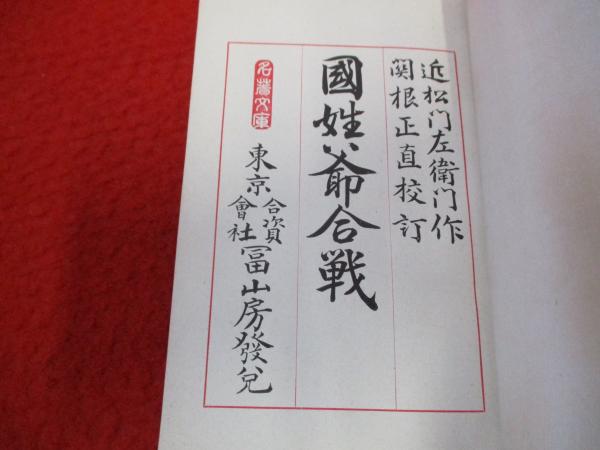 近松门左衛门作
関根正直校訂
國姓爺合戰
名著文庫
東京合資會社冨山房發兌